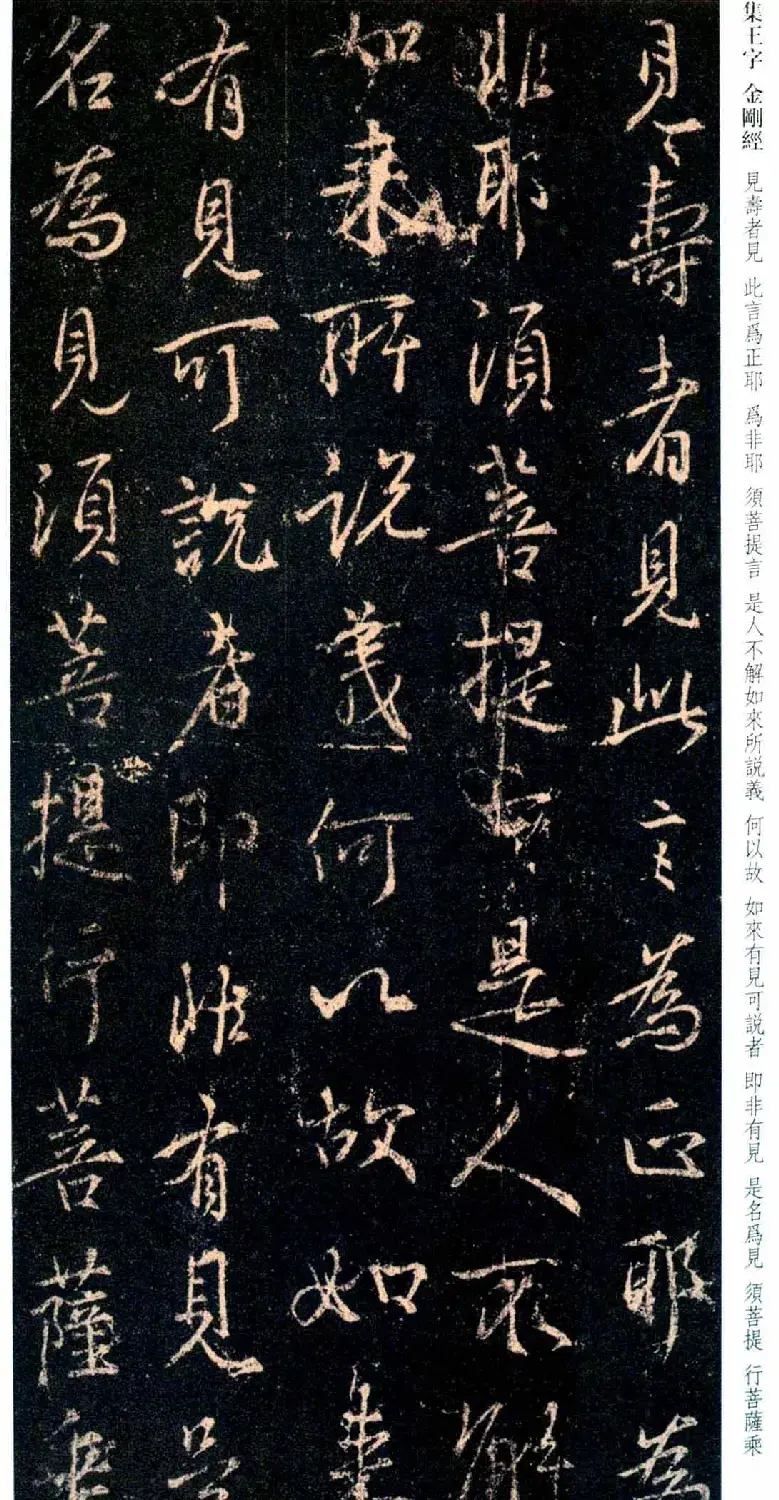 集王字 金剛經 見壽者見 此言爲正耶 爲非耶 須菩提言 是人不解如來所説義 何以故 如來有見可説者 即非有見 是名爲見 須菩提 行菩薩乘
見壽者見此言為正耶為
非耶須菩提言是人不解
如来所説義何以故如来
有見可説者即非有見是
名為見須菩提行菩薩乘